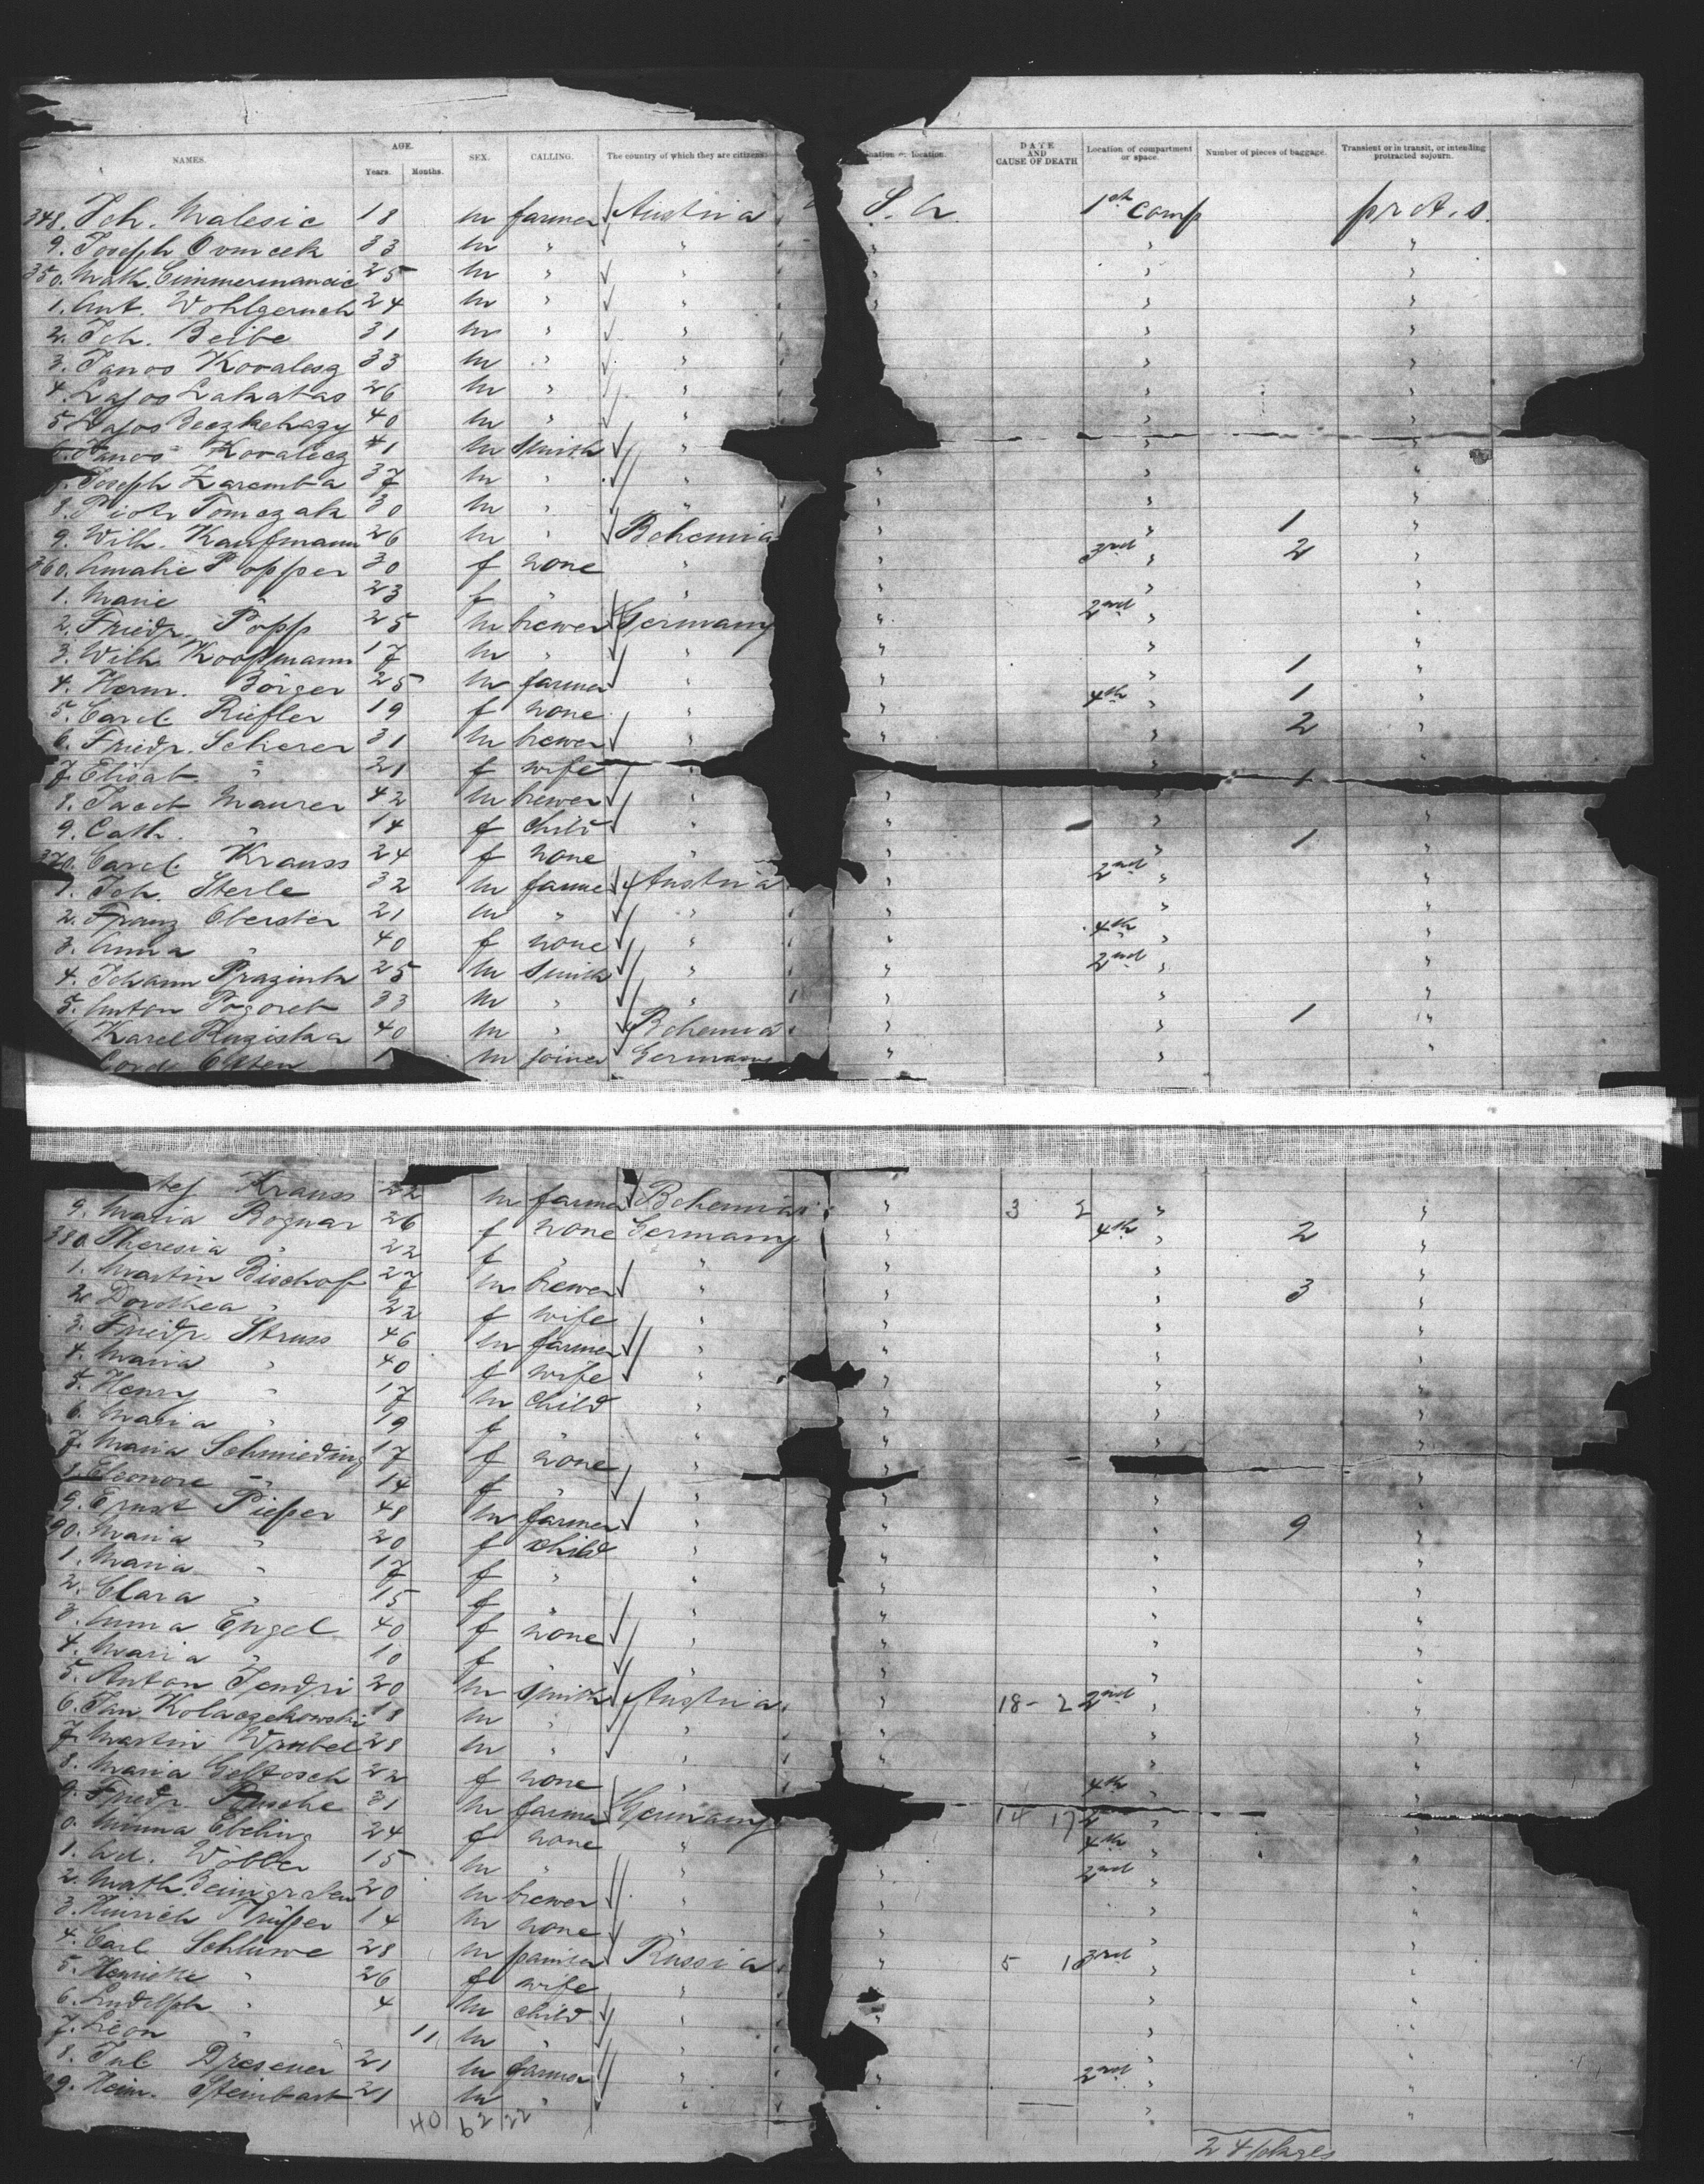 NAMES. AGE. Years. Months. SEX. CALLING. The country of which they are citizens. location. DATE AND CAUSE OF DEATH Location of compartment or space. Number of pieces of baggage. Transient or in transit, or intending protracted sojourn.
348. Joh. Malesic 18 m farmer Austria 1st comp
9. Joseph 33 m " " " " "
350. Math. Cimmermancic 25 m " " " " "
1. Ant. Wohlgemuth 24 m " " " " "
2. Joh. Beibe 31 m " " " "
3. Janos Kovalesz 33 m " " " "
4. Lajos Lakatas 26 m " " " "
5. Lajos 40 m " " " "
Janos Kovalecz 41 m smith " " "
Joseph Zaremba 37 m " " " " "
8. Piotr Tomczak 30 m " " " " "
9. Wilh. Kaufmann 26 m " Bohemia " " 1 "
360. Amalie Popper 30 f none " " 3rd " 2 "
1. Marie " 23 f " " " " "
2. Friedr. Popp 25 m brewer Germany " 2nd "
3. Wilh. Koopmann 17 m " " " " "
4. Herm. Börger 25 m farmer " " " 1 "
5. Carol. Riefler 19 f none " " 4th " 1 "
6. Friedr. Scherer 31 m brewer " " 2 "
7. Elisab. " 21 f wife "
8. Jacob Maurer 42 m brewer " " " 1
9. Cath. " 14 f child " " " "
370. Carol. Krauss 24 f none " " " 1 "
1. Joh. Sterle 32 m farmer Austria " 2nd " "
2. Franz Oberster 21 m " " " " "
3. Anna " 40 f none " " 4th " "
4. Johann Prazink 25 m smith " " 2nd " "
5. Anton Pogoreb 33 m " " " " "
Karel Ruziska 40 m " Bohemia " " 1 "
Cord m joiner Germany " "
Krauss 22 m farmer Bohemia " 3 2 " "
9. Maria Bognar 26 f none Germany " 4th " 2 "
380. Theresia " 22 f " " " " "
1. Martin Bischof 27 m brewer " " " 3 "
2. Dorothea " 22 f wife " " " "
3. Friedr. Struss 46 m farmer " " " "
4. Maria " 40 f wife " " "
5. Henry " 17 m child " " " "
6. Maria " 19 f " " " " "
7. Maria Schmieding 17 f none " "
8. Eleonore " 14 f " " " " "
9. Ernst Pieper 48 m farmer " " " 9 "
90. Maria " 20 f child " " " "
1. Maria " 17 f " " " " "
2. Clara " 15 f " " " " "
3. Anna Engel 40 f none " " " "
4. Maria " 10 f " " " " "
5. Anton 20 m smith Austria " 18- 2 2nd " "
6. Jan Kolaczkowski 18 m " " " "
7. Martin Wrubel 28 m " " " "
8. Maria 22 f none " 4th " "
9. Friedr. 31 m farmer Germany 14 17 2 " "
0. Minna Ebeling 24 f none " " 4th " "
1. Wöbber 15 m " " " 2nd " "
2. Math. 20 m brewer " " " "
3. Hinrich 14 m none " " "
4. Carl Schluwe 28 m Russia " 5 1 3rd " "
5. Henriette " 26 f wife " " "
6. Ludolph " 4 m child " " "
7. Leon " 11 m " " " "
8. Jul. Dresener 21 m farmer " 2nd " "
9. Heinr. Steinbart 21 m " " " "
40 62 22
24 pkages